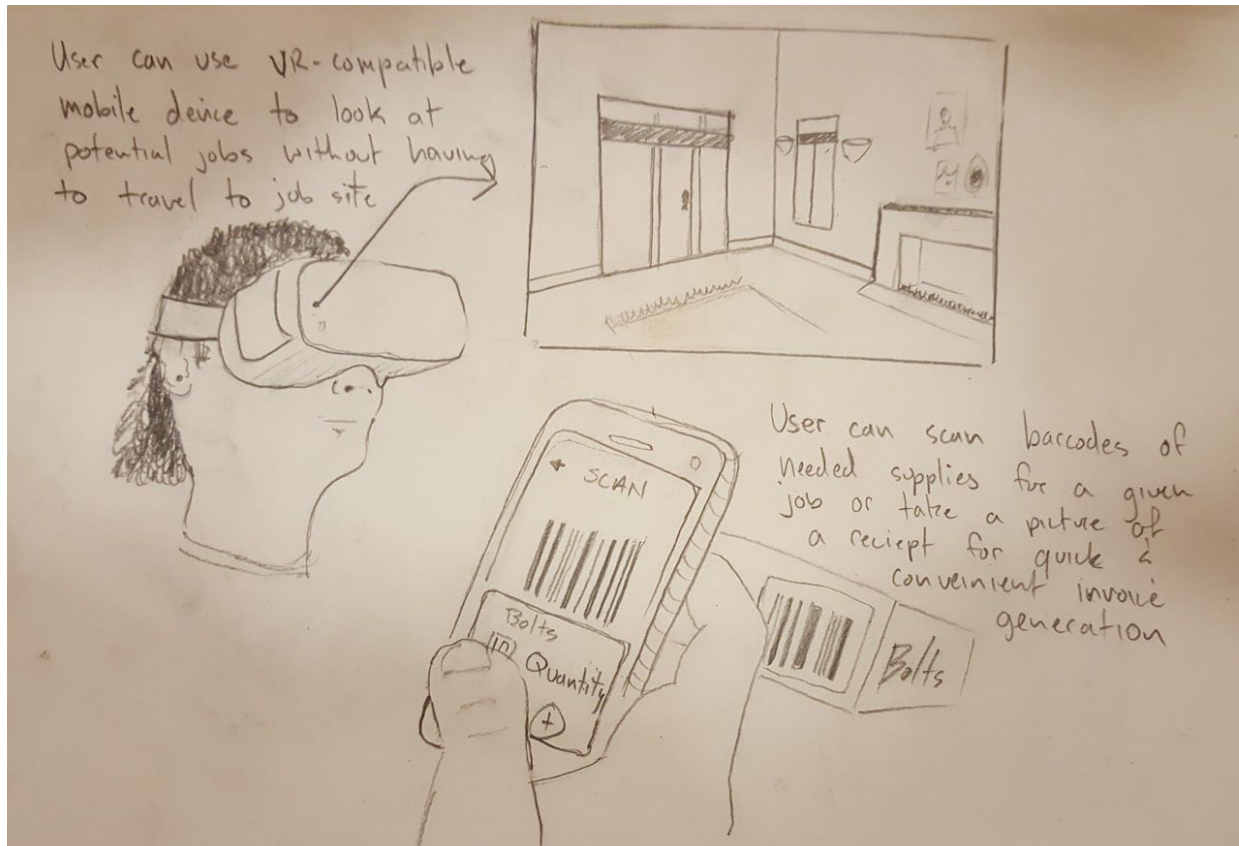 User can use VR-compatible
mobile device to look at
potential jobs without having
to travel to job site
User can scan barcodes of
needed supplies for a given
job or take a picture of
a reciept for quick &
conveinient invoice
generation
SCAN
Bolts
Quantity
+
Bolts